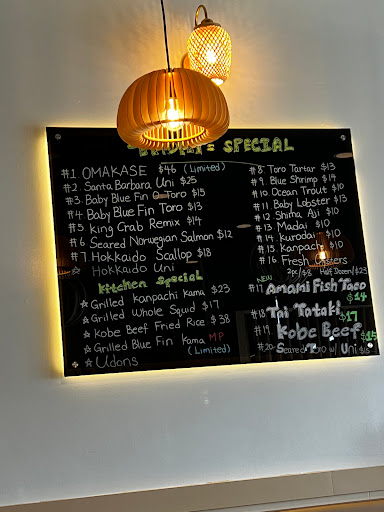 SPECIAL
#1. OMAKASE $46 (Limited)
#2. Santa Barbara Uni $25
#3. Baby Blue Fin O-Toro $15
#4 Baby Blue Fin Toro $13
#5. King Crab Remix $14
#6 Seared Norwegian Salmon $12
#7 Hokkaido Scallop $18
☆ Hokkaido Uni
Kitchen Special
☆ Grilled Kanpachi Kama $23
☆ Grilled Whole Squid $17
☆ Kobe Beef Fried Rice $38
☆ Grilled Blue Fin Kama MP
(Limited)
☆ Udons
#8 Toro Tartar $13
#9 Blue Shrimp $14
#10 Ocean Trout $10
#11 Baby Lobster $13
#12 Shima Aji $10
#13 Madai $10
#14 Kurodai $10
#15 Kanpachi $10
#16 Fresh Oysters
2pc/$8 Half Dozen/$23
NEW
#17 Amami Fish Taco
$14
#18 Tai Tataki
$17
#19 Kobe Beef
$15
#20 Seared Toro w/ Uni $15